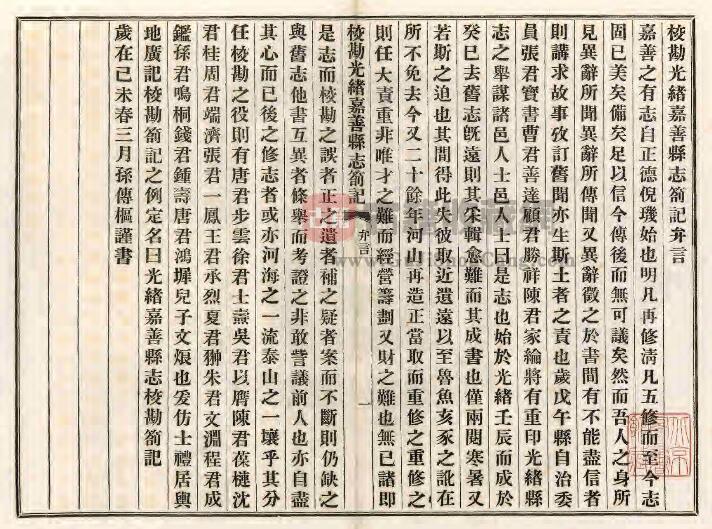 校勘光緒嘉善縣志劄記弁言
嘉善之有志自正德倪璣始也明凡再修清凡五修而至今志
固已美矣備矣足以信今傳後而無可議矣然而吾人之身所
見異辭所聞異辭所傳聞又異辭徵之於書間有不能盡信者
則講求故事攷訂舊聞亦生斯土者之責也歲戊午縣自治委
員張君寶書曹君善達顧君勝祥陳君家綸將有重印光緒縣
志之舉謀諸邑人士邑人士曰是志也始於光緒壬辰而成於
癸巳去舊志旣遠則其采輯愈難而其成書也僅兩閱寒暑又
若斯之迫也其間得此失彼取近遺遠以至魯魚亥豕之訛在
所不免去今又二十餘年河山再造正當取而重修之重修之
則任大責重非唯才之難而經營籌劃又財之難也無已諸卽
校勘光緒嘉善縣志劄記 弁言 一
是志而校勘之誤者正之遺者補之疑者案而不斷則仍缺之
與舊志他書互異者條舉而考證之非敢訾議前人也亦自盡
其心而已後之修志者或亦河海之一流泰山之一壤乎其分
任校勘之役則有唐君步雲徐君士燾吳君以膺陳君葆槤沈
君桂周君端濟張君一鳳王君承烈夏君獅朱君文淵程君成
鑑孫君鳴桐錢君鍾壽唐君鴻墀兒子文煅也爰仿士禮居輿
地廣記校勘劄記之例定名曰光緒嘉善縣志校勘劄記
歲在己未春三月孫傳樞謹書